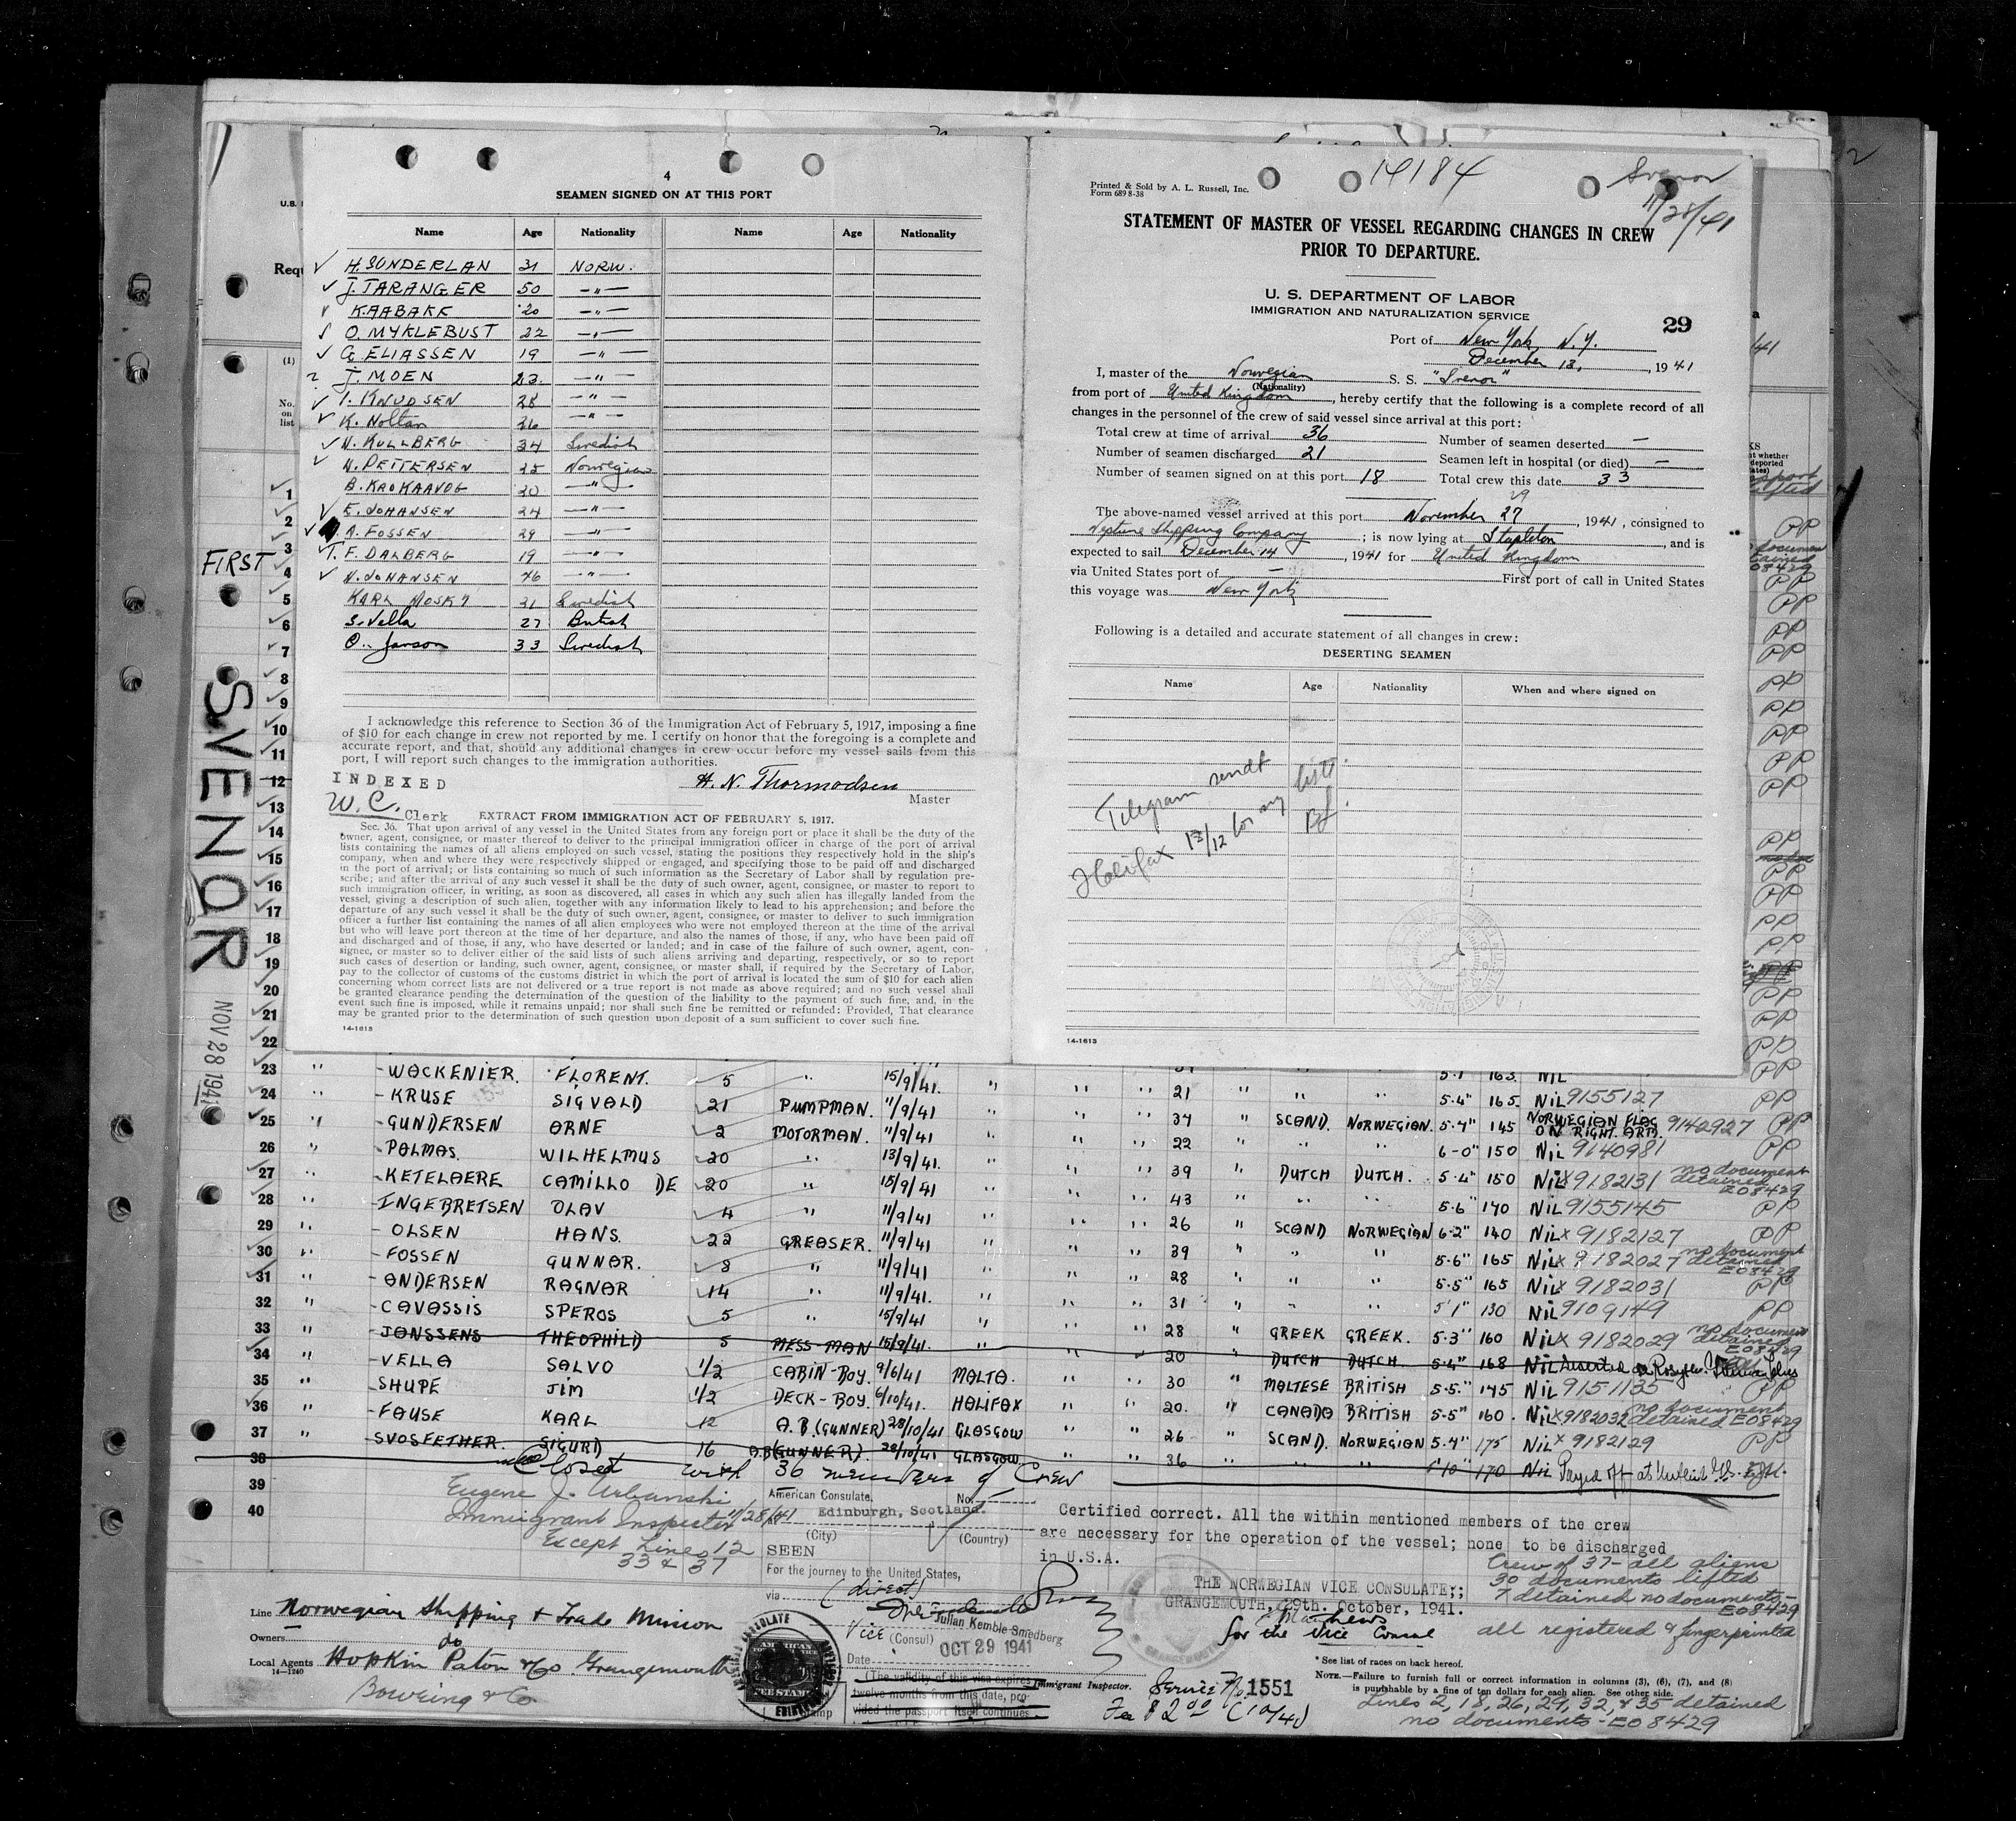 4
SEAMEN SIGNED ON AT THIS PORT
Name Age Nationality Name Age Nationality
H. SUNDERLAN 31 NORW.
J. TARANGER 50 —"—
K. AABAKK 20 —"—
O. MYKLEBUST 22 —"—
G. ELIASSEN 19 —"—
J. MOEN 23 —"—
I. KNUDSEN 28 —"—
K. Noltan 26 —"—
N. KULLBERG 34 Swedish
N. PETTERSEN 25 Norwegian
B. KROKAAVOG 20 —"—
E. JOHANSEN 24 —"—
A. FOSSEN 29 —"—
T. F. DALBERG 19 —"—
N. JOHANSEN 46 —"—
KARL MOSKY 21 Swedish
S. Vella 27 British
O. Janson 33 Swedish
I acknowledge this reference to Section 36 of the Immigration Act of February 5, 1917, imposing a fine
of $10 for each change in crew not reported by me. I certify on honor that the foregoing is a complete and
accurate report, and that, should any additional changes in crew occur before my vessel sails from this
port, I will report such changes to the immigration authorities.
INDEXED
H. N. Thormodsen
Master
W.C. Clerk
EXTRACT FROM IMMIGRATION ACT OF FEBRUARY 5, 1917.
Sec. 36. That upon arrival of any vessel in the United States from any foreign port or place it shall be the duty of the
owner, agent, consignee, or master thereof to deliver to the principal immigration officer in charge of the port of arrival
lists containing the names of all aliens employed on such vessel, stating the positions they respectively hold in the ship's
company, when and where they were respectively shipped or engaged, and specifying those to be paid off and discharged
in the port of arrival; or lists containing so much of such information as the Secretary of Labor shall by regulation pre-
scribe; and after the arrival of any such vessel it shall be the duty of such owner, agent, consignee, or master to report to
such immigration officer, in writing, as soon as discovered, all cases in which any such alien has illegally landed from the
vessel, giving a description of such alien, together with any information likely to lead to his apprehension; and before the
departure of any such vessel it shall be the duty of such owner, agent, consignee, or master to deliver to such immigration
officer a further list containing the names of all alien employees who were not employed thereon at the time of the arrival
but who will leave port thereon at the time of her departure, and also the names of those, if any, who have been paid off
and discharged and of those, if any, who have deserted or landed; and in case of the failure of such owner, agent, con-
signee, or master so to deliver either of the said lists of such aliens arriving and departing, respectively, or so to report
such cases of desertion or landing, such owner, agent, consignee, or master shall, if required by the Secretary of Labor,
pay to the collector of customs of the customs district in which the port of arrival is located the sum of $10 for each alien
concerning whom correct lists are not delivered or a true report is not made as above required; and no such vessel shall
be granted clearance pending the determination of the question of the liability to the payment of such fine, and, in the
event such fine is imposed, while it remains unpaid; nor shall such fine be remitted or refunded: Provided, That clearance
may be granted prior to the determination of such question upon deposit of a sum sufficient to cover such fine.
14-1613
Printed & Sold by A. L. Russell, Inc.
Form 689 8-38
14184
Svenor
11/28/41
STATEMENT OF MASTER OF VESSEL REGARDING CHANGES IN CREW
PRIOR TO DEPARTURE.
U. S. DEPARTMENT OF LABOR
IMMIGRATION AND NATURALIZATION SERVICE
29
Port of New York N.Y.
December 13, , 1941
I, master of the Norwegian S. S. "Svenor"
(Nationality)
from port of United Kingdom, hereby certify that the following is a complete record of all
changes in the personnel of the crew of said vessel since arrival at this port:
Total crew at time of arrival 36 Number of seamen deserted —
Number of seamen discharged 21 Seamen left in hospital (or died) —
Number of seamen signed on at this port 18 Total crew this date 33
29
The above-named vessel arrived at this port November 27, 1941, consigned to
Neptune Shipping Company; is now lying at Stapleton, and is
expected to sail December 14, 1941 for United Kingdom
via United States port of — First port of call in United States
this voyage was New York
Following is a detailed and accurate statement of all changes in crew:
DESERTING SEAMEN
Name Age Nationality When and where signed on
Telegram sendt
Halifax 13/12 for
14-1613
FIRST
SVENOR
NOV 28 1941
U.S.
Requ
(1)
No. on list
1
2
3
4
5
6
7
8
9
10
11
12
13
14
15
16
17
18
19
20
21
22
23 " WACKENIER. FLORENT. 5 " 15/9/41. " " " 5-1 163. NIL PP
24 " KRUSE SIGVALD 21 PUMPMAN. 11/9/41 " " " 21 " " " 5-4" 165 NIL 9155127 PP
25 " GUNDERSEN ARNE 2 MOTORMAN. 11/9/41 " " " 34 " SCAND. NORWEGIAN. 5-4" 145 NORWEGIAN FLAG ON RIGHT ARM. 9140927 PP
26 " PALMAS. WILHELMUS 20 " 13/9/41. " " " 22 " " " 6-0" 150 NIL 9140981 PP
27 " KETELAERE CAMILLO DE 20 " 15/9/41 " " " 39 " DUTCH DUTCH. 5-4" 150 NIL x 9182131 no document detained E08429
28 " INGEBRETSEN OLAV 4 " 11/9/41 " " " 43 " " " 5-6" 170 NIL 9155145 PP
29 " OLSEN HANS. 22 GREASER. 11/9/41 " " " 26 " SCAND NORWEGIAN 6-2" 140 NIL x 9182127 PP
30 " FOSSEN GUNNAR. 8 " 11/9/41 " " " 39 " " " 5-6" 165 NIL x 9182027 no document detained E08429
31 " ANDERSEN RAGNAR 14 " 11/9/41. " " " 28 " " " 5-5" 165 NIL x 9182031 PP
32 " CAVASSIS SPEROS 5 " 15/9/41 " " " 31 " " " 5'1" 130 NIL 9109149 PP
33 " JANSSENS THEOPHILD 5 MESS-MAN 15/9/41. " " " 28 " GREEK GREEK. 5-3" 160 NIL x 9182029 no document detained E08429
34 " VELLA SALVO 1/2 CABIN-BOY. 9/6/41 MALTA. " " 20 " DUTCH DUTCH 5-4" 168 NIL
35 " SHUPE JIM 1/2 DECK-BOY. 6/10/41. HALIFAX " " 30 " MALTESE BRITISH 5-5." 145 NIL 9151135 PP
36 " FAUSE KARL 12 A.B. (GUNNER) 28/10/41 GLASGOW " " 20. " CANADA BRITISH 5-5" 160. NIL x 9182032 no document detained E08429
37 " SVOSFETHER. SIGURD 16 A.B (GUNNER). 28/10/41 GLASGOW. " " 26 " SCAND. NORWEGIAN 5-4" 175 NIL x 9182129 PP
38 " " 36 " " " 5'10" 170 NIL Payed off at
Closed with 36 members of Crew
39
40
Eugene J. Urbanski
Immigrant Inspector 11/28/41
Except Lines 12
33 & 37
American Consulate, No.
at Edinburgh, Scotland.
(City) (Country)
SEEN
For the journey to the United States,
via (direct)
Julian Kemble Smedberg
Vice (Consul)
Date OCT 29 1941
(The validity of this visa expires
twelve months from this date, pro-
vided the passport itself continues
Certified correct. All the within mentioned members of the crew
are necessary for the operation of the vessel; none to be discharged
in U.S.A.
THE NORWEGIAN VICE CONSULATE,;
GRANGEMOUTH, 29th. October, 1941.
for the Vice Consul
Crew of 37 - all aliens
30 documents lifted
7 detained no documents -
E08429
all registered & fingerprinted
Line Norwegian Shipping & Trade Mission
Owners do
Local Agents Hopkin Paton & Co. Grangemouth
14-1240
Bowring & Co
Immigrant Inspector.
Service No. 1551
Fee $2.00 (10/40)
* See list of races on back hereof.
NOTE.—Failure to furnish full or correct information in columns (3), (6), (7), and (8)
is punishable by a fine of ten dollars for each alien. See other side.
Lines 2, 18, 26, 29, 32, & 35 detained
no documents - E08429